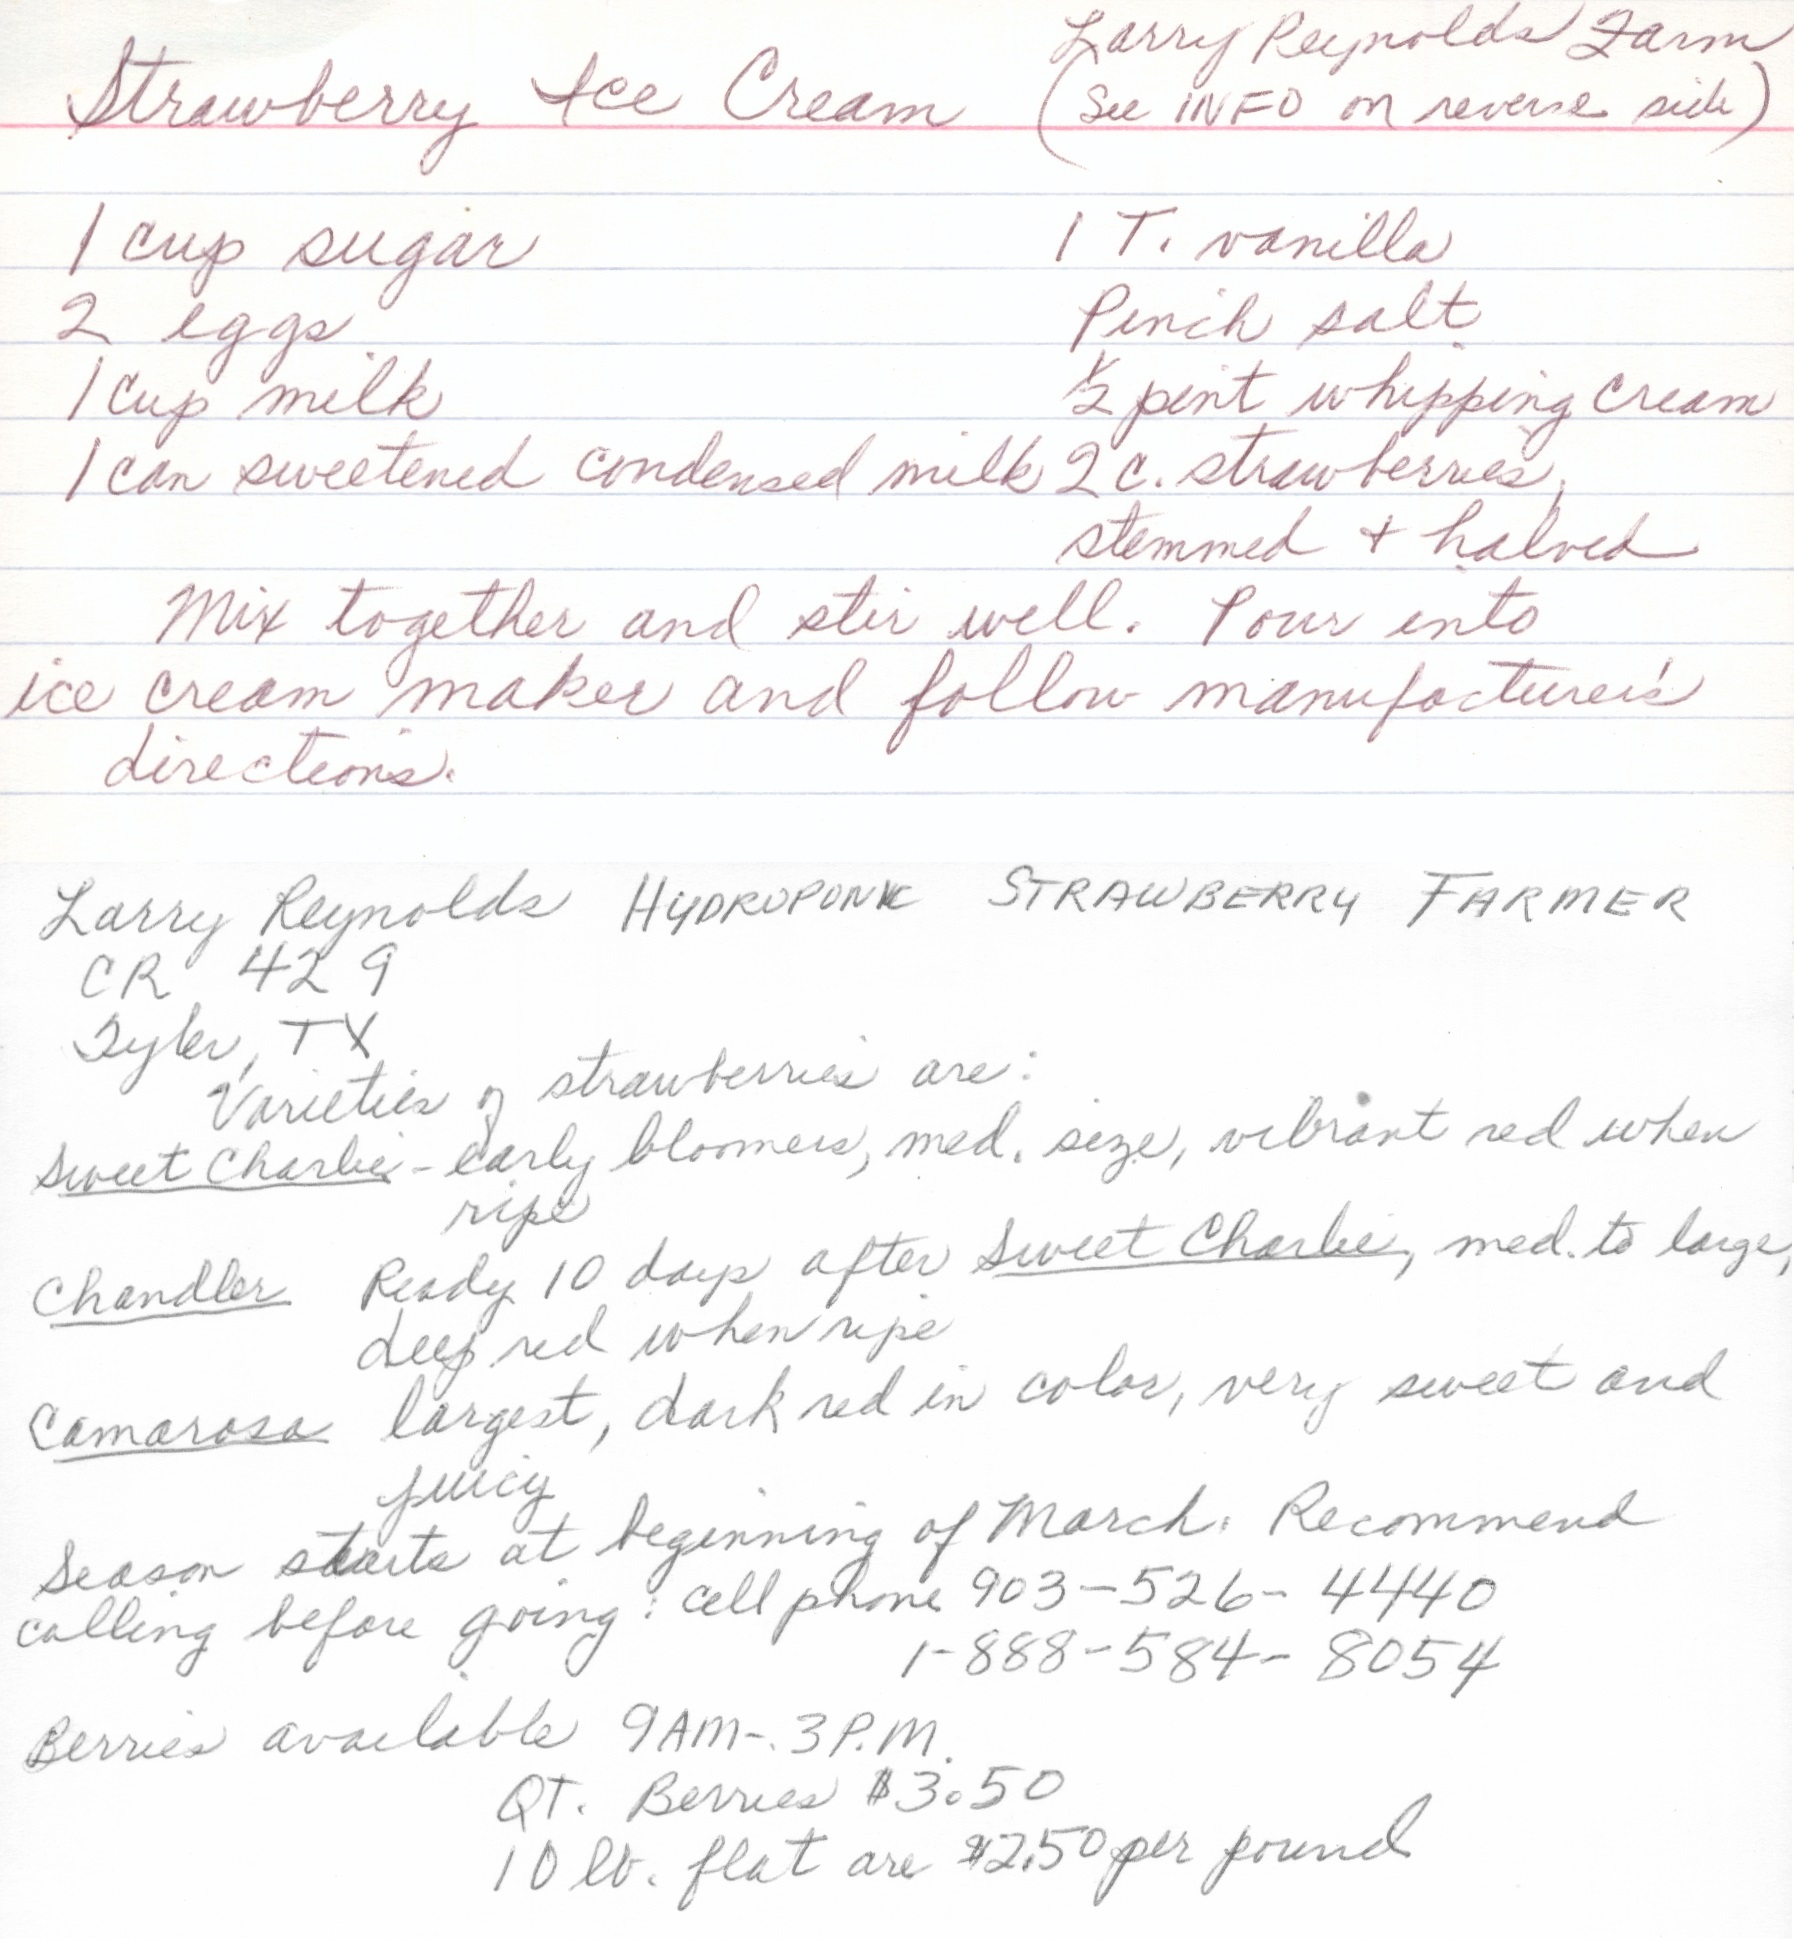 Strawberry Ice Cream
Larry Reynolds Farm
(See INFO on reverse side)
1 cup sugar
2 eggs
1 cup milk
1 can sweetened condensed milk
1 T. vanilla
Pinch salt
1/2 pint whipping cream
2 c. strawberries,
stemmed + halved
Mix together and stir well. Pour into
ice cream maker and follow manufacturer's
directions.
Larry Reynolds HYDROPONIC STRAWBERRY FARMER
CR 429
Tyler, TX
Varieties of strawberries are:
Sweet Charlie - early bloomers, med. size, vibrant red when
ripe
Chandler Ready 10 days after Sweet Charlie, med. to large,
deep red when ripe
Camarosa largest, dark red in color, very sweet and
juicy
Season starts at beginning of March. Recommend
calling before going: cell phone 903-526-4440
1-888-584-8054
Berries available 9AM-3P.M.
QT. Berries $3.50
10 lb. flat are $2.50 per pound